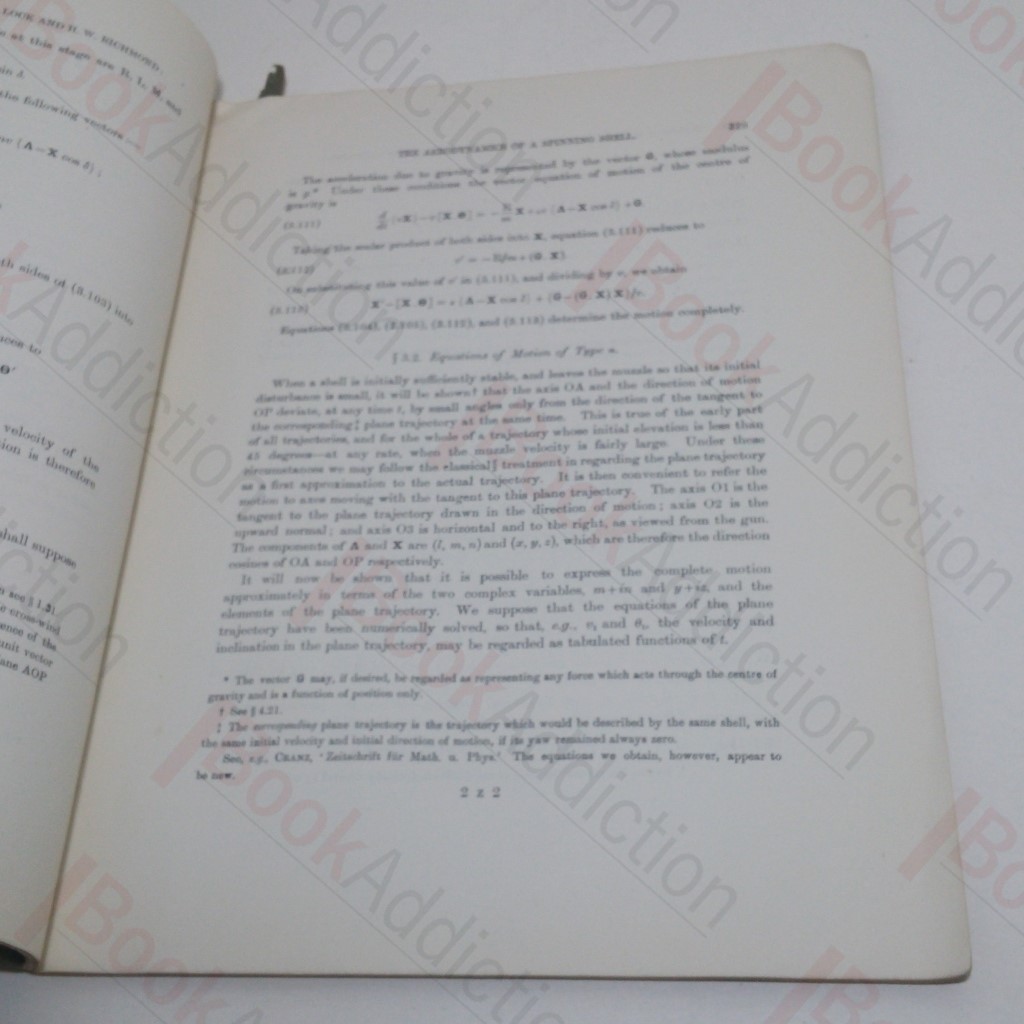 LOCK AND H. W. RICHMOND
at this stage are R, L, M, and
in J.
the following vectors
(Λ−X cos δ) ;
th sides of (3.103) into
to
Θ′
velocity of the
ion is therefore
shall suppose
see § 1.21
cross-wind
ence of the
unit vector
plane AOP
THE AERODYNAMICS OF A SPINNING SHELL.
The acceleration due to gravity is represented by the vector G, whose modulus
is g.* Under these conditions the vector equation of motion of the centre of
gravity is
(3.111)
Taking the scalar product of both sides into X, equation (3.111) reduces to
(3.112)
On substituting this value of v′ in (3.111), and dividing by v, we obtain
(3.113)
Equations (3.112), and (3.113) determine the motion completely.
§ 3.2. Equations of Motion of Type α.
When a shell is initially sufficiently stable, and leaves the muzzle so that its initial
disturbance is small, it will be shown† that the axis OA and the direction of motion
OP deviate, at any time t, by small angles only from the direction of the tangent to
the corresponding‡ plane trajectory at the same time. This is true of the early part
of all trajectories, and for the whole of a trajectory whose initial elevation is less than
45 degrees—at any rate, when the muzzle velocity is fairly large. Under these
circumstances we may follow the classical treatment in regarding the plane trajectory
as a first approximation to the actual trajectory. It is then convenient to refer the
motion to axes moving with the tangent to this plane trajectory. The axis O1 is the
tangent to the plane trajectory drawn in the direction of motion ; axis O2 is the
upward normal ; and axis O3 is horizontal and to the right, as viewed from the gun.
The components of Λ and X are (l, m, n) and (x, y, z), which are therefore the direction
cosines of OA and OP respectively.
It will now be shown that it is possible to express the complete motion
approximately in terms of the two complex variables, m+in and y+iz, and the
elements of the plane trajectory. We suppose that the equations of the plane
trajectory have been numerically solved, so that, e.g., v, and θ, the velocity and
inclination in the plane trajectory, may be regarded as tabulated functions of t.
* The vector G may, if desired, be regarded as representing any force which acts through the centre of
gravity and is a function of position only.
† See § 4.21.
‡ The corresponding plane trajectory is the trajectory which would be described by the same shell, with
the same initial velocity and initial direction of motion, if its yaw remained always zero.
See, e.g., CRANZ, ‘Zeitschrift für Math. u. Phys.’ The equations we obtain, however, appear to
be new.
2 z 2
BookAddiction